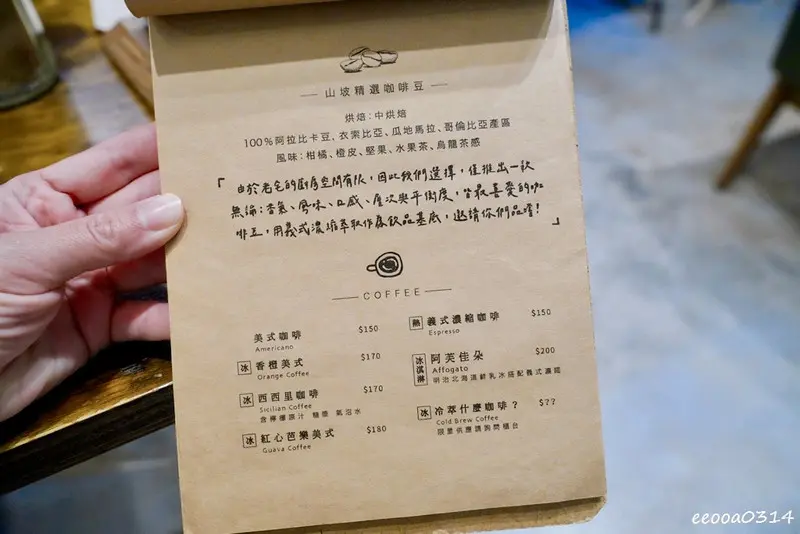 山坡精選咖啡豆
烘焙:中烘焙
100%阿拉比卡豆、衣索比亞、瓜地馬拉、哥倫比亞產區
風味:柑橘、橙皮、堅果、水果茶、烏龍茶感
「由於老宅的廚房空間有限,因此我們選擇,僅推出一款
無論:香氣、風味、口感、層次與平衡度,皆最喜愛的咖
啡豆,用義式濃縮萃取作為飲品基底,邀請你們品嚐!」
COFFEE
美式咖啡 $150
Americano
冰 香橙美式 $170
Orange Coffee
冰 西西里咖啡 $170
Sicilian Coffee
含檸檬原汁 糖漿 氣泡水
冰 紅心芭樂美式 $180
Guava Coffee
熱 義式濃縮咖啡 $150
Espresso
冰淇淋 阿芙佳朵 $200
Affogato
明治北海道鮮乳冰搭配義式濃縮
冰 冷萃什麼咖啡? $??
Cold Brew Coffee
限量供應請詢問櫃台
eeooa0314